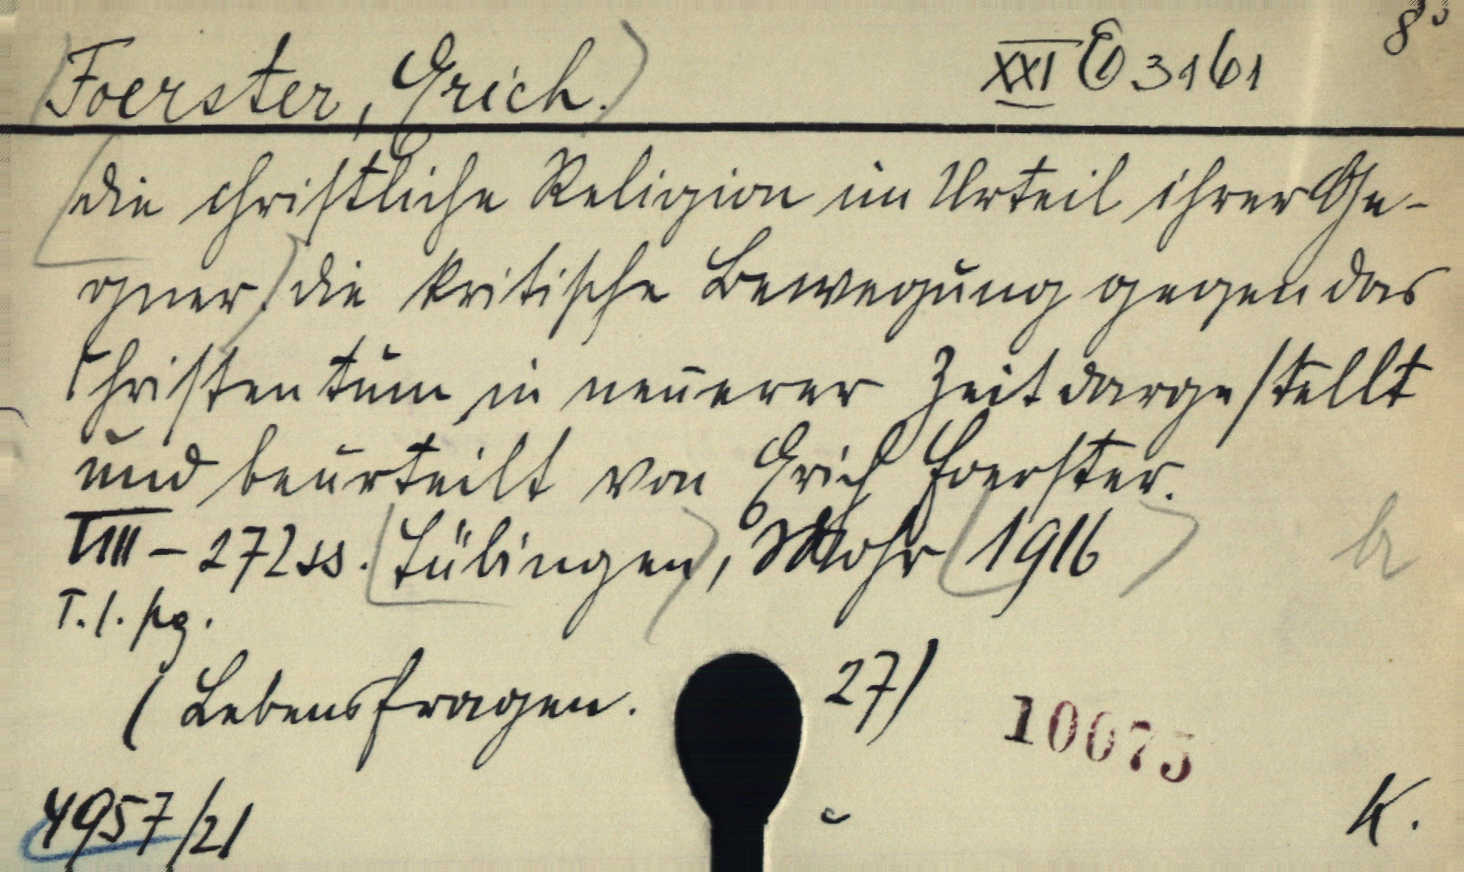 Foerster, Erich. XXI E 3161 8°
die christliche Religion im Urteil ihrer Ge-
gner. die kritische Bewegung gegen das
Christentum in neuerer Zeit dargestellt
und beurteilt von Erich Foerster.
VIII - 272 ss. Tübingen, Mohr 1916
T. 1. pg.
(Lebensfragen. 27)
10075
4957/21 K.